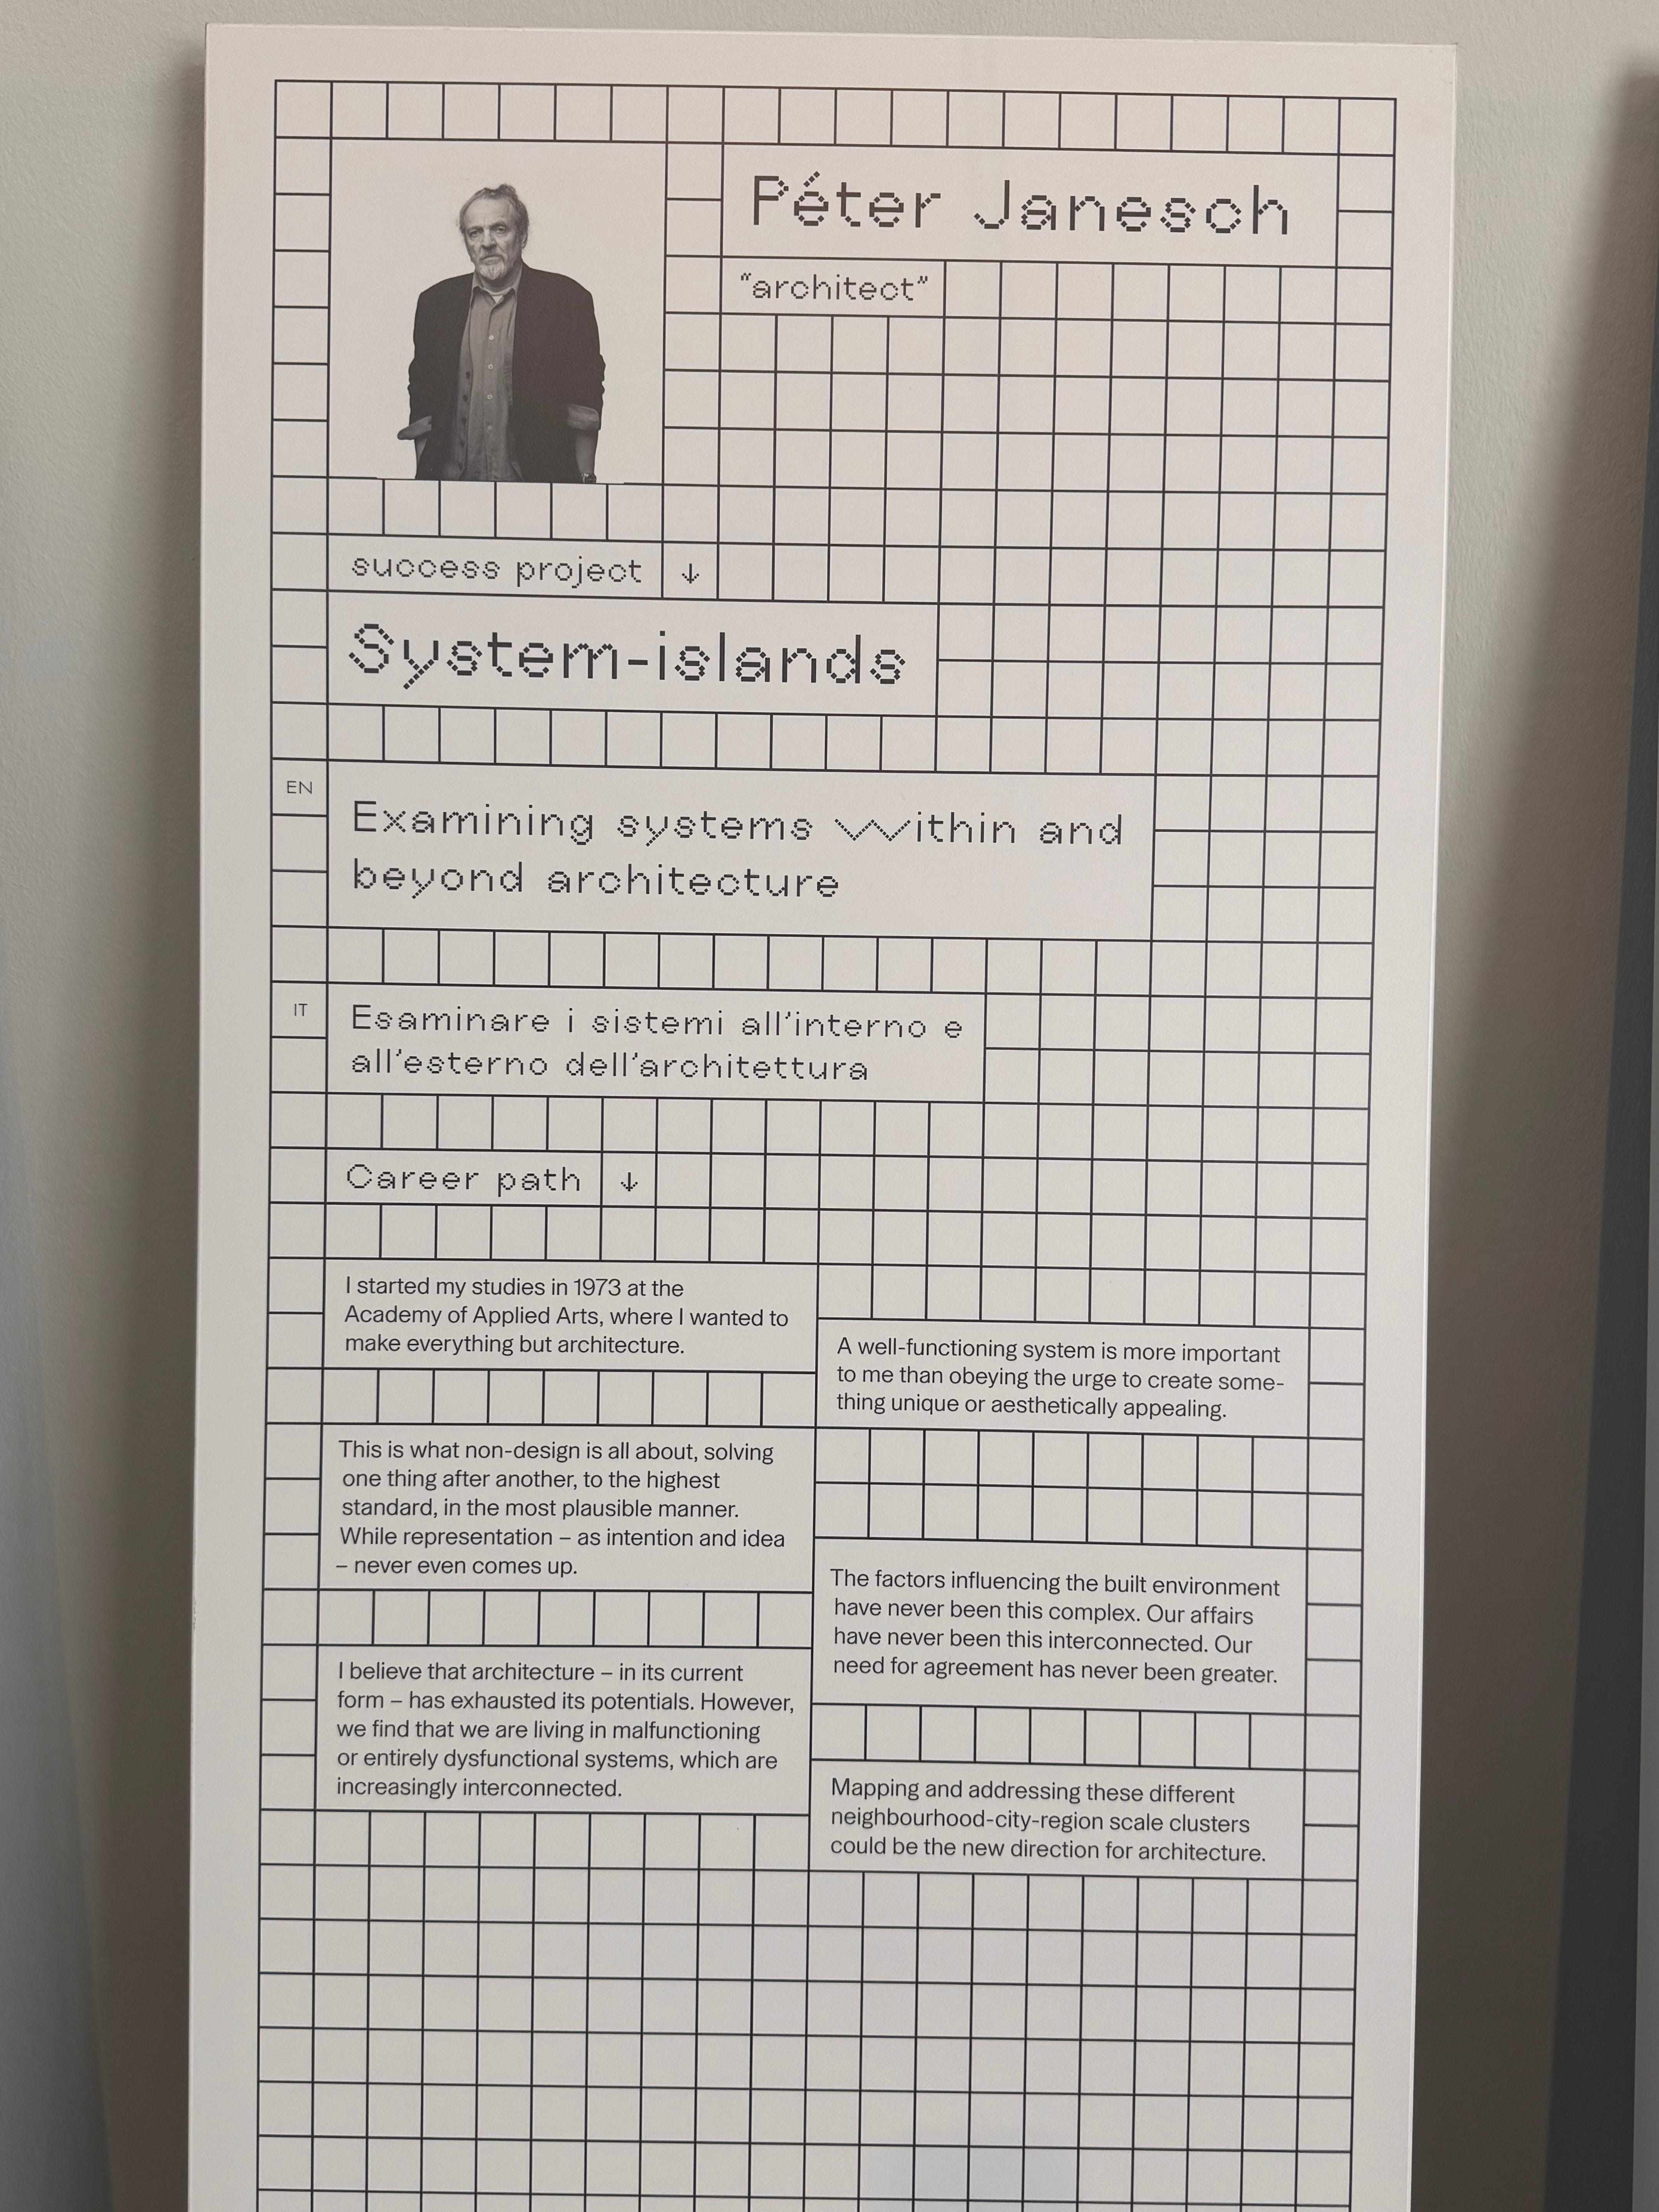 Péter Janesch
“architect”
success project ↓
System-islands
EN
Examining systems within and
beyond architecture
IT
Esaminare i sistemi all’interno e
all’esterno dell’architettura
Career path ↓
I started my studies in 1973 at the
Academy of Applied Arts, where I wanted to
make everything but architecture.
This is what non-design is all about, solving
one thing after another, to the highest
standard, in the most plausible manner.
While representation – as intention and idea
– never even comes up.
I believe that architecture – in its current
form – has exhausted its potentials. However,
we find that we are living in malfunctioning
or entirely dysfunctional systems, which are
increasingly interconnected.
A well-functioning system is more important
to me than obeying the urge to create some-
thing unique or aesthetically appealing.
The factors influencing the built environment
have never been this complex. Our affairs
have never been this interconnected. Our
need for agreement has never been greater.
Mapping and addressing these different
neighbourhood-city-region scale clusters
could be the new direction for architecture.